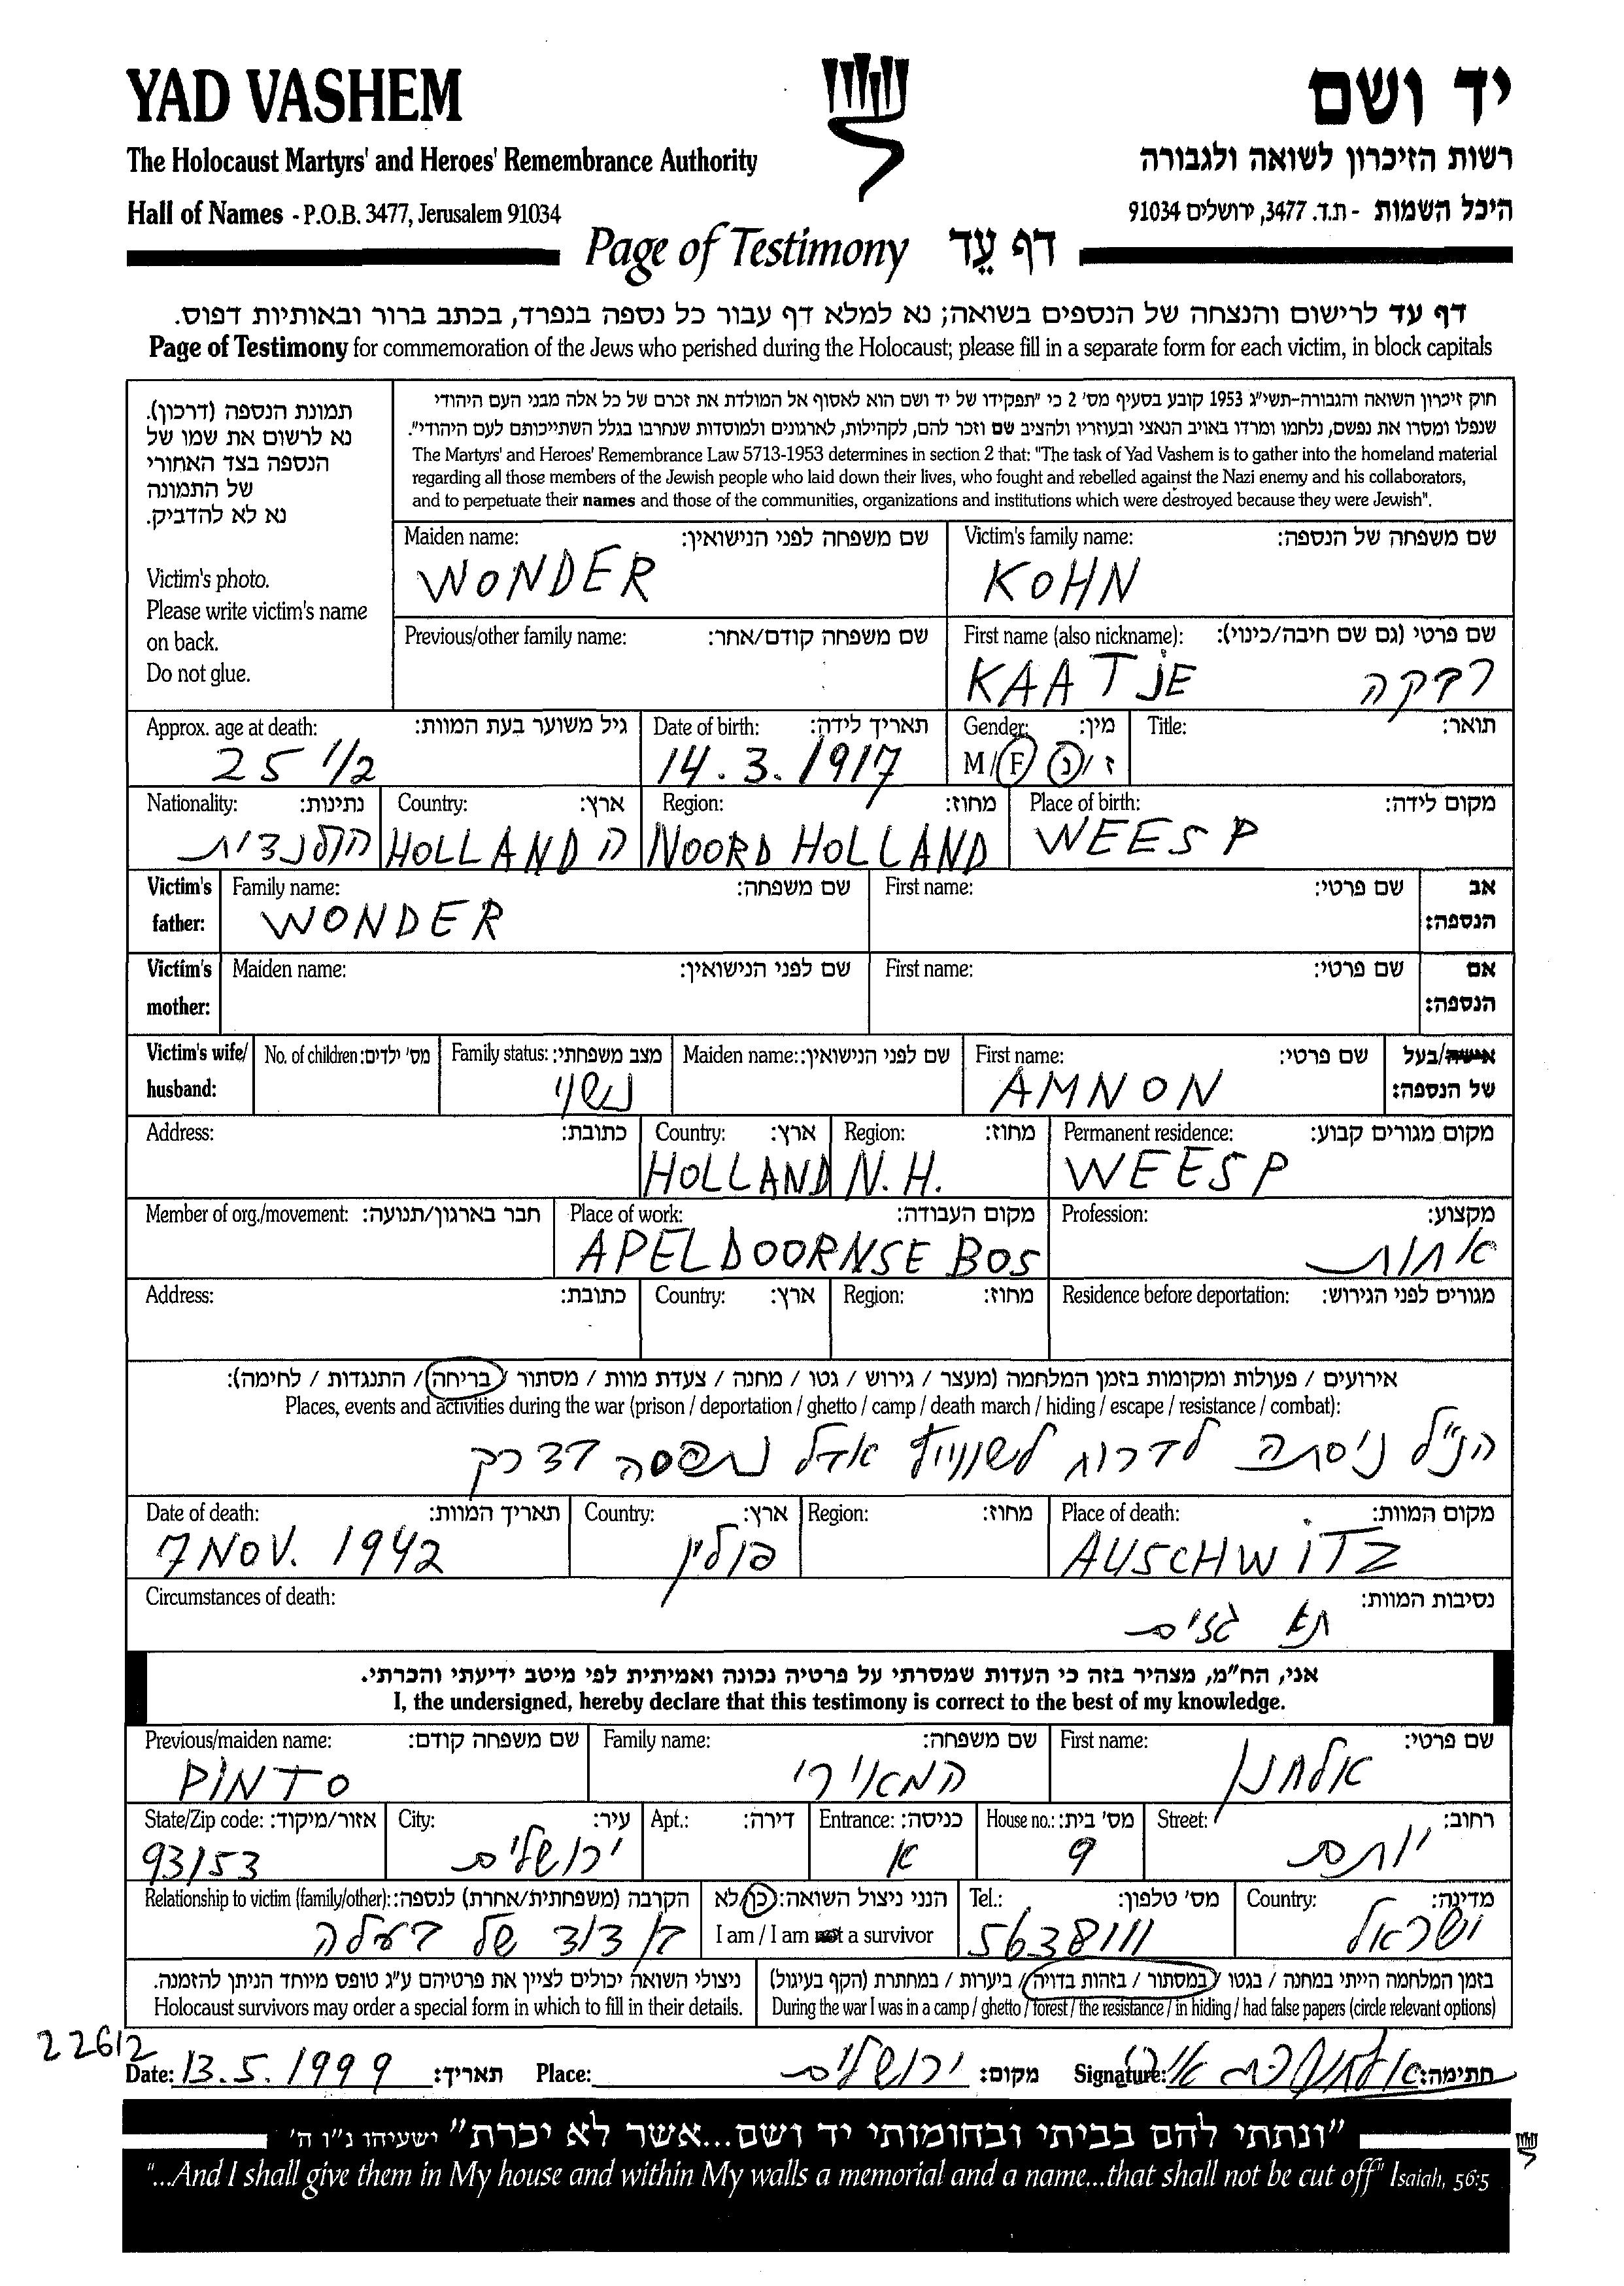 YAD VASHEM
יד ושם
The Holocaust Martyrs' and Heroes' Remembrance Authority
רשות הזיכרון לשואה ולגבורה
Hall of Names - P.O.B. 3477, Jerusalem 91034
היכל השמות - ת.ד. 3477, ירושלים 91034
Page of Testimony דף עֵד
דף עד לרישום והנצחה של הנספים בשואה; נא למלא דף עבור כל נספה בנפרד, בכתב ברור ובאותיות דפוס.
Page of Testimony for commemoration of the Jews who perished during the Holocaust; please fill in a separate form for each victim, in block capitals
תמונת הנספה (דרכון).
נא לרשום את שמו של
הנספה בצד האחורי
של התמונה
נא לא להדביק.
Victim's photo.
Please write victim's name
on back.
Do not glue.
חוק זיכרון השואה והגבורה-תשי"ג 1953 קובע בסעיף מס' 2 כי "תפקידו של יד ושם הוא לאסוף אל המולדת את זכרם של כל אלה מבני העם היהודי
שנפלו ומסרו את נפשם, נלחמו ומרדו באויב הנאצי ובעוזריו ולהציב שם וזכר להם, לקהילות, לארגונים ולמוסדות שנחרבו בגלל השתייכותם לעם היהודי".
The Martyrs' and Heroes' Remembrance Law 5713-1953 determines in section 2 that: "The task of Yad Vashem is to gather into the homeland material
regarding all those members of the Jewish people who laid down their lives, who fought and rebelled against the Nazi enemy and his collaborators,
and to perpetuate their names and those of the communities, organizations and institutions which were destroyed because they were Jewish".
Maiden name: שם משפחה לפני הנישואין: Victim's family name: שם משפחה של הנספה:
WONDER KOHN
Previous/other family name: שם משפחה קודם/אחר: First name (also nickname): שם פרטי (גם שם חיבה/כינוי):
KAATJE רבקה
Approx. age at death: גיל משוער בעת המוות: Date of birth: תאריך לידה: Gender: מין: Title: תואר:
25 1/2 14.3.1917 M/F ז/נ
Nationality: נתינות: Country: ארץ: Region: מחוז: Place of birth: מקום לידה:
הולנדית HOLLAND ה NOORD HOLLAND WEESP
Victim's father: Family name: שם משפחה: First name: שם פרטי: אב הנספה:
WONDER
Victim's mother: Maiden name: שם לפני הנישואין: First name: שם פרטי: אם הנספה:
Victim's wife/ husband: No. of children: מס' ילדים: Family status: מצב משפחתי: Maiden name: שם לפני הנישואין: First name: שם פרטי: אישה/בעל של הנספה:
נשוי AMNON
Address: כתובת: Country: ארץ: Region: מחוז: Permanent residence: מקום מגורים קבוע:
HOLLAND N.H. WEESP
Member of org./movement: חבר בארגון/תנועה: Place of work: מקום העבודה: Profession: מקצוע:
APELDOORNSE BOS אחות
Address: כתובת: Country: ארץ: Region: מחוז: Residence before deportation: מגורים לפני הגירוש:
אירועים / פעולות ומקומות בזמן המלחמה (מעצר / גירוש / גטו / מחנה / צעדת מוות / מסתור / בריחה / התנגדות / לחימה):
Places, events and activities during the war (prison / deportation / ghetto / camp / death march / hiding / escape / resistance / combat):
הנ"ל ניסתה לברוח לשוויץ אבל נתפסה בדרך
Date of death: תאריך המוות: Country: ארץ: Region: מחוז: Place of death: מקום המוות:
7 NOV. 1942 פולין AUSCHWITZ
Circumstances of death: נסיבות המוות:
תא גזים
אני, הח"מ, מצהיר בזה כי העדות שמסרתי על פרטיה נכונה ואמיתית לפי מיטב ידיעתי והכרתי.
I, the undersigned, hereby declare that this testimony is correct to the best of my knowledge.
Previous/maiden name: שם משפחה קודם: Family name: שם משפחה: First name: שם פרטי:
PINTO המאירי אלחנן
State/Zip code: אזור/מיקוד: City: עיר: Apt.: דירה: Entrance: כניסה: House no.: מס' בית: Street: רחוב:
93153 ירושלים א 9 יותם
Relationship to victim (family/other): הקרבה (משפחתית/אחרת) לנספה: הנני ניצול השואה: כן/לא Tel.: מס' טלפון: Country: מדינה:
בן דוד של בעלה I am / I am not a survivor 5638111 ישראל
ניצולי השואה יכולים לציין את פרטיהם ע"ג טופס מיוחד הניתן להזמנה.
Holocaust survivors may order a special form in which to fill in their details.
בזמן המלחמה הייתי במחנה / בגטו / במסתור / בזהות בדויה / ביערות / במחתרת (הקף בעיגול)
During the war I was in a camp / ghetto / forest / the resistance / in hiding / had false papers (circle relevant options)
22612
Date: 13.5.1999 תאריך: Place: ירושלים מקום: Signature: חתימה:
"ונתתי להם בביתי ובחומותי יד ושם...אשר לא יכרת" ישעיהו נ"ו ה'
"...And I shall give them in My house and within My walls a memorial and a name...that shall not be cut off" Isaiah, 56:5